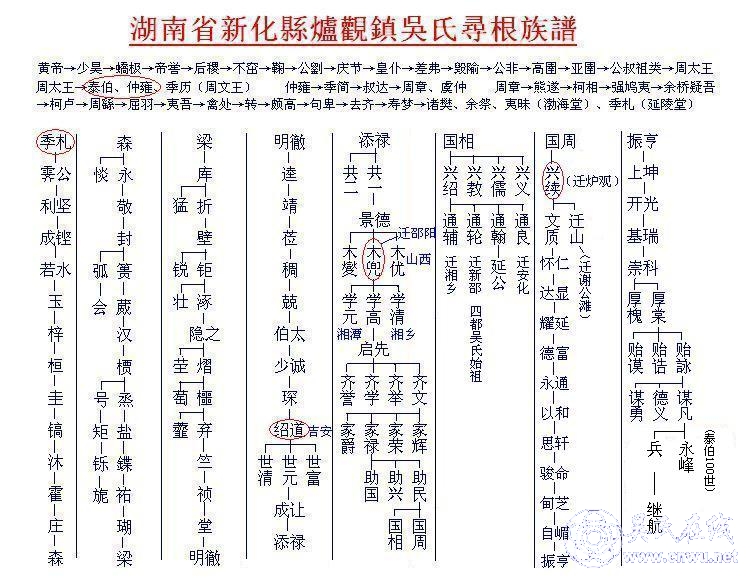 湖南省新化縣爐觀鎮吳氏尋根族譜
黄帝→少昊→蟜极→帝喾→后稷→不窋→鞠→公劉→庆节→皇仆→差弗→毁隃→公非→高圉→亚圉→公叔祖类→周太王
周太王→泰伯、仲雍、季历（周文王） 仲雍→季简→叔达→周章、虞仲 周章→熊遂→柯相→强鸠夷→余桥疑吾
→柯卢→周繇→屈羽→夷吾→禽处→转→颇高→句卑→去齐→寿梦→诸樊、余祭、夷昧（渤海堂）、季札（延陵堂）
季札
霁公
利坚
成铿
若水
玉
梓
桓
圭
镐
沐
霍
庄
森
森
惔 永
敬
封
弧 蒉
会 蒇
汉
槚
号 烝
矩 盐
铄 蝶
旎 祐
瑚
梁
梁
库
猛 折
壁
锐 钜
壮 涿
隐之
茔 熠
萄 櫃
弃
竺
祯
堂
明徹
明徹
逵
靖
莅
稠
兢
伯太
少诚
琛
绍道 吉安
世清 世元 世富
成让
添禄
添禄
共二 共一
景德 迁邵阳
木燮 木兜 木优 山西
学元 学高 学清
湘潭 湘乡
启先
齐誉 齐学 齐举 齐文
家爵 家禄 家荣 家辉
助国 助兴 助民
国相 国周
国相
兴绍 兴教 兴儒 兴义
通辅 通轮 通翰 通良
迁湘乡 迁新邵 延公 迁安化
四都吴氏始祖
国周
兴续（迁炉观）
文质 迁山（迁谢公滩）
怀仁
达显
耀延
德富
永通
以和
思轩
骏命
甸芝
自嵋
振亨
振亨
上坤
开光
基瑞
崇科
厚槐 厚棠
贻谟 贻诰 贻詠
谋勇 德义 谋凡
兵 永峰
继航
（泰伯100世）
吴氏在线
www.cnwu.net